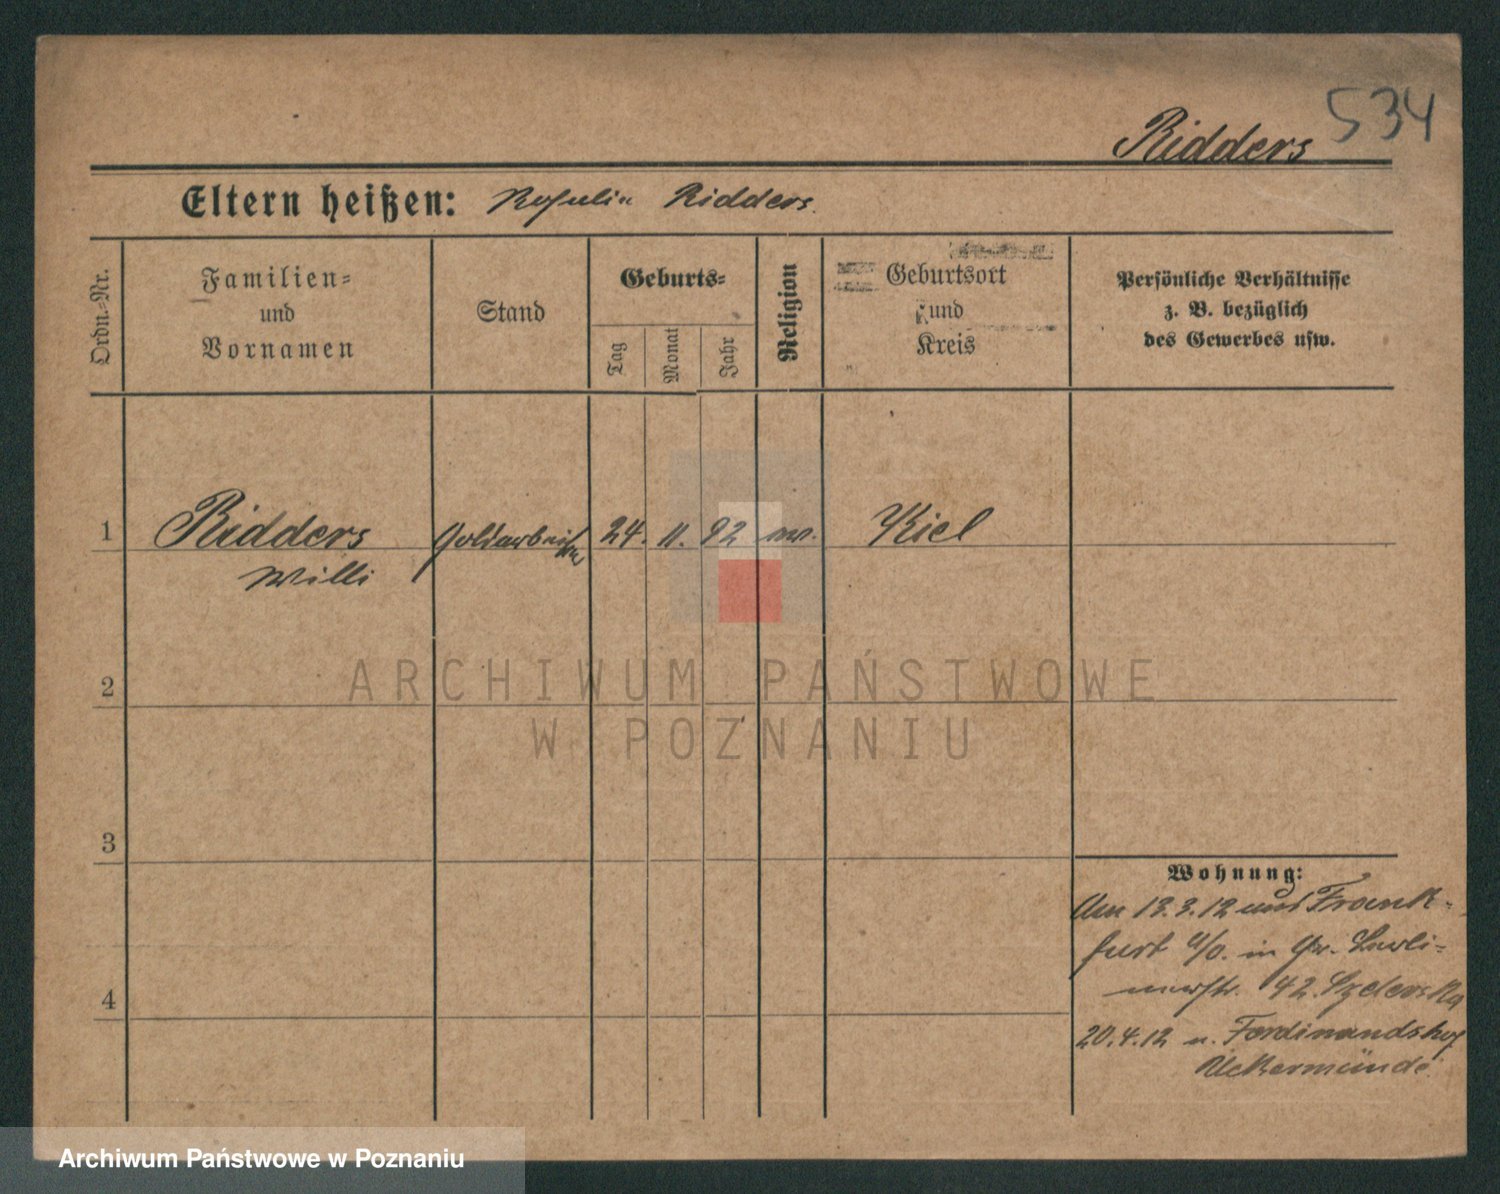 534
Ridders
Eltern heißen: Rosalie Ridders.
Ordn.-Nr.
Familien-
und
Vornamen
Stand
Geburts-
Tag
Monat
Jahr
Religion
Geburtsort
und
Kreis
Persönliche Verhältnisse
z. B. bezüglich
des Gewerbes usw.
1 Ridders Goldarbeiter 24. 11. 92 ev. Kiel
Willi
2
3
4
Wohnung:
Am 13.3.12 aus Frank-
furt a/O. in Gr. Berli-
nerstr. 42.
20.4.12 n. Ferdinandshof
Uckermünde.
ARCHIWUM PAŃSTWOWE
W POZNANIU
Archiwum Państwowe w Poznaniu